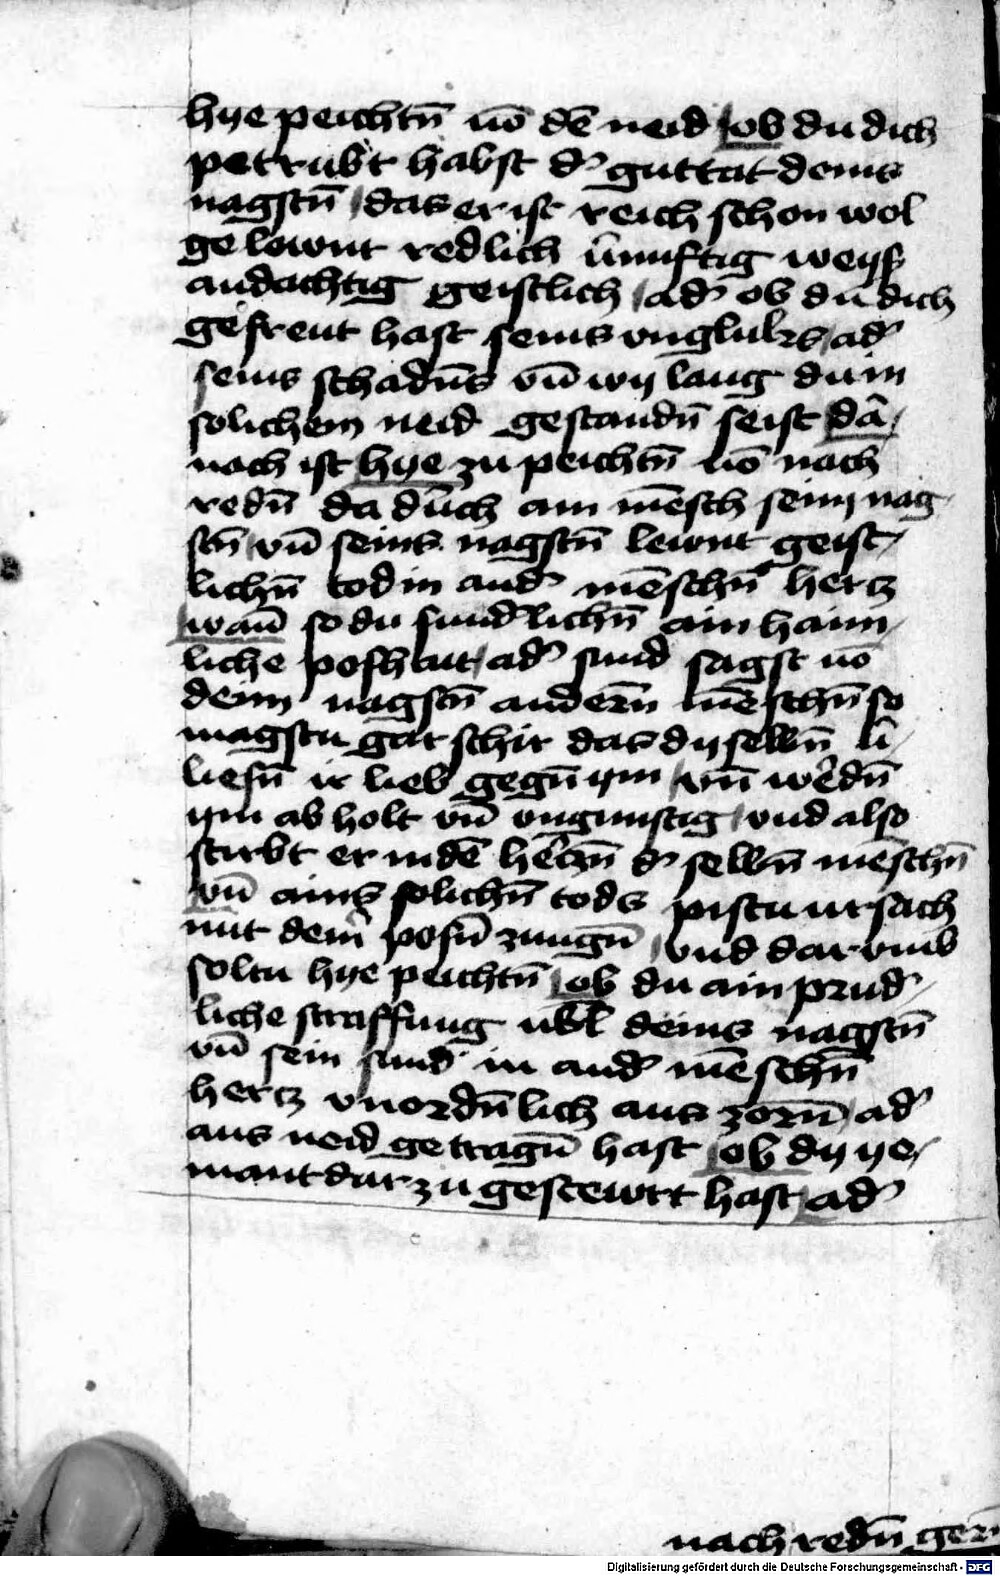 hye peichtn̄ vō dē neid ob du dich
petrubt habst d' guttat deins
nagstn̄ das er ist reich schon wol
gelewnt redlich v̂nuftig weyß
andachtig geistlich ad' ob du dich
gefreut hast seins vngluks ad'
seins schadn̄s vn̄ wy lang du in
solichem neid gestandn̄ seist dā
nach ist hye zu peichtn̄ vō nach
redn̄ da durch ain mēsch seinn nag
stn̄ vn̄ seins nagstn̄ lewnt geist
lichn̄ tod in and' mēschn̄ hertz
wan̄ so du sund'lichn̄ ain haim
liche poshait ad' sund sagst vō
deim nagstn̄ andern̄ mēschn̄ so
magstu gar schir das dy selbn̄ v̂
liesn̄ ir lieb gegn̄ ym vn̄ werdn̄
ym ab holt vn̄ vngunstig vnd also
stirbt er in dē hertzn̄ d' selbn̄ mēschn̄
vn̄ ains solichn̄ tods pistu ursach
mit deinr̄ posn̄ zungn̄ vnd dar vmb
soltu hye peichtn̄ ob du ain prud'
liche straffung vbl deins nagstn̄
vn̄ sein sund' in and' mēschn̄
hertz vnordn̄lich aus zorn̄ ad'
aus neid getragn̄ hast ob dy ye
mant dar zu gestewrt hast ad'
nach redn̄ gern
Digitalisierung gefördert durch die Deutsche Forschungsgemeinschaft - DFG